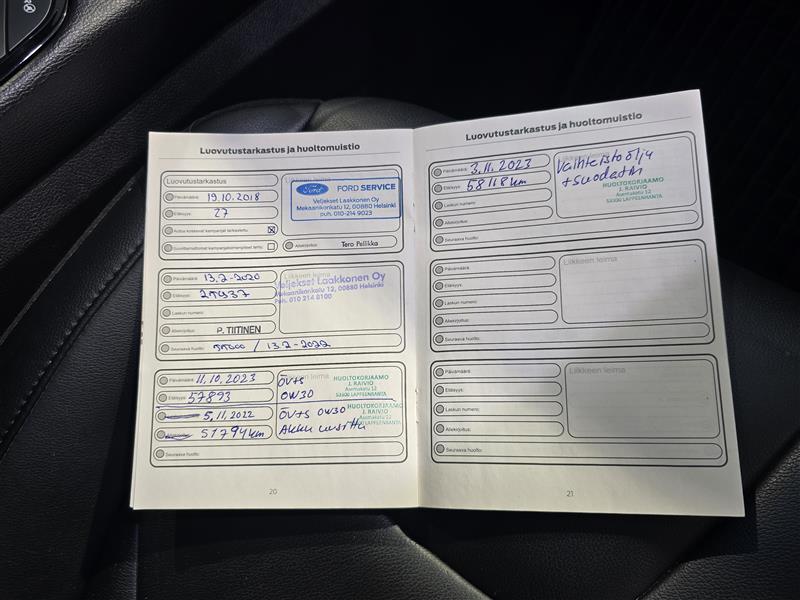 Luovutustarkastus ja huoltomuistio
Luovutustarkastus
Liikkeen leima
Päivämäärä: 19.10.2018
Etäisyys: 27
Ford FORD SERVICE
Veljekset Laakkonen Oy
Mekaanikonkatu 12, 00880 Helsinki
puh. 010-214 9023
Autoa koskevat kampanjat tarkastettu:
Suorittamattomat kampanjatoimenpiteet tehty:
Allekirjoitus: Tero Pellikka
Päivämäärä: 13.2-2020
Etäisyys:
Laskun numero:
Allekirjoitus: P. TIITINEN
Seuraava huolto: / 13.2-2022
Liikkeen leima
Veljekset Laakkonen Oy
Mekaanikonkatu 12, 00880 Helsinki
Puh. 010 214 8100
Päivämäärä: 11.10.2023
Etäisyys: 57893
ÖV+S
0W30
HUOLTOKORJAAMO
J. RAIVIO
Asemakatu 2
53500 LAPPEENRANTA
5.11.2022
51794km
ÖV+S 0W30
Akku uusittu
HUOLTOKORJAAMO
J. RAIVIO
Asemakatu 2
LAPPEENRANTA
Seuraava huolto:
20
Luovutustarkastus ja huoltomuistio
Päivämäärä: 3.11.2023
Etäisyys: 58118km
Laskun numero:
Allekirjoitus:
Seuraava huolto:
Liikkeen leima
Vaihteistoölju
+suodatin
HUOLTOKORJAAMO
J. RAIVIO
Asemakatu 2
53500 LAPPEENRANTA
Päivämäärä:
Etäisyys:
Laskun numero:
Allekirjoitus:
Seuraava huolto:
Liikkeen leima
Päivämäärä:
Etäisyys:
Laskun numero:
Allekirjoitus:
Seuraava huolto:
Liikkeen leima
21